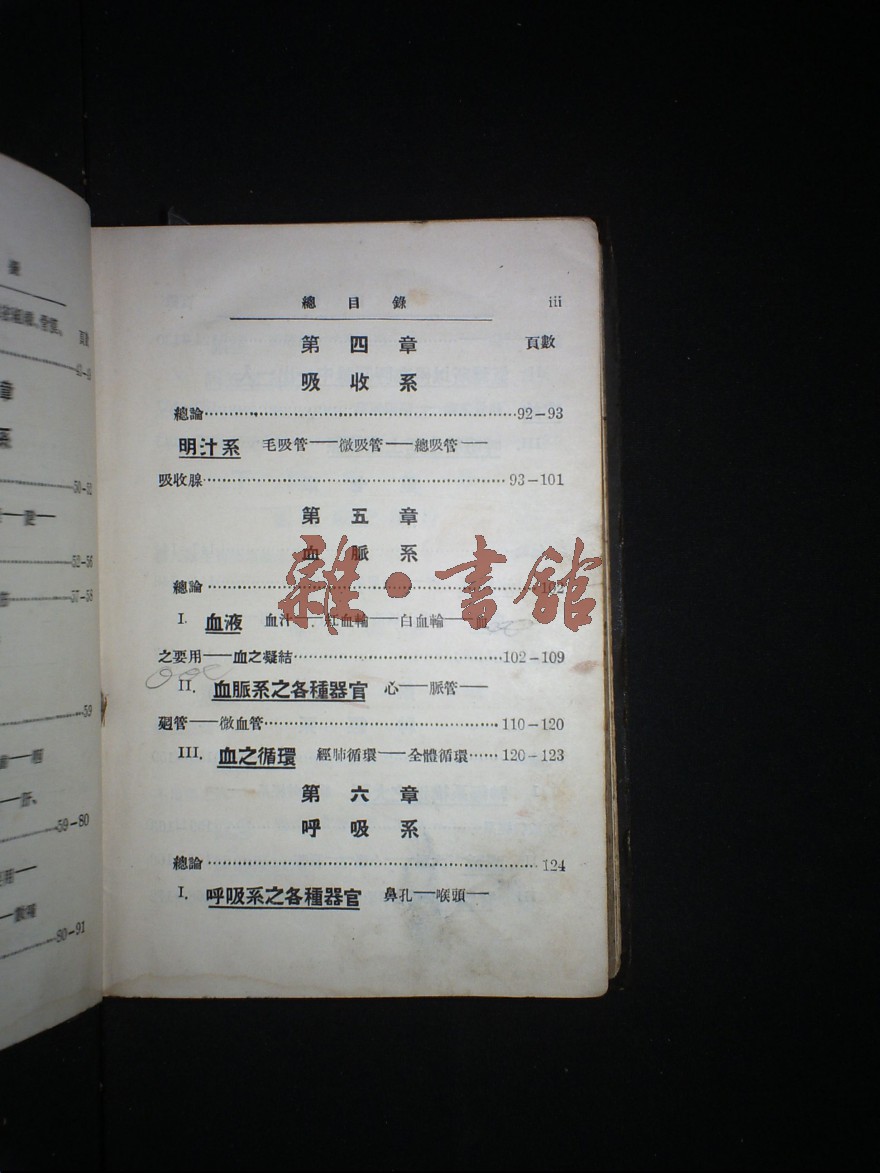 總目錄 iii
第四章 頁數
吸收系
總論……92–93
明汁系 毛吸管——微吸管——總吸管——
吸收腺……93–101
第五章
血脈系
總論……102
I. 血液 血汁——紅血輪——白血輪——血
之要用——血之凝結……102–109
II. 血脈系之各種器官 心——脈管——
廻管——微血管……110–120
III. 血之循環 經肺循環——全體循環……120–123
第六章
呼吸系
總論……124
I. 呼吸系之各種器官 鼻孔——喉頭——
雜·書館
頁數
章
系
52–56
57–58
59
59–80
80–91